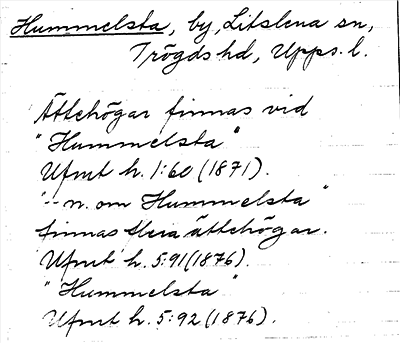 Hummelsta, by, Litslena sn,
Trögds hd, Upps. l.
Ättehögar finnas vid
"Hummelsta"
Ufmt h. 1:60 (1871).
"-- n. om Hummelsta"
finnas flera ättehögar.
Ufmt h. 5:91 (1876).
"Hummelsta"
Ufmt h. 5:92 (1876).